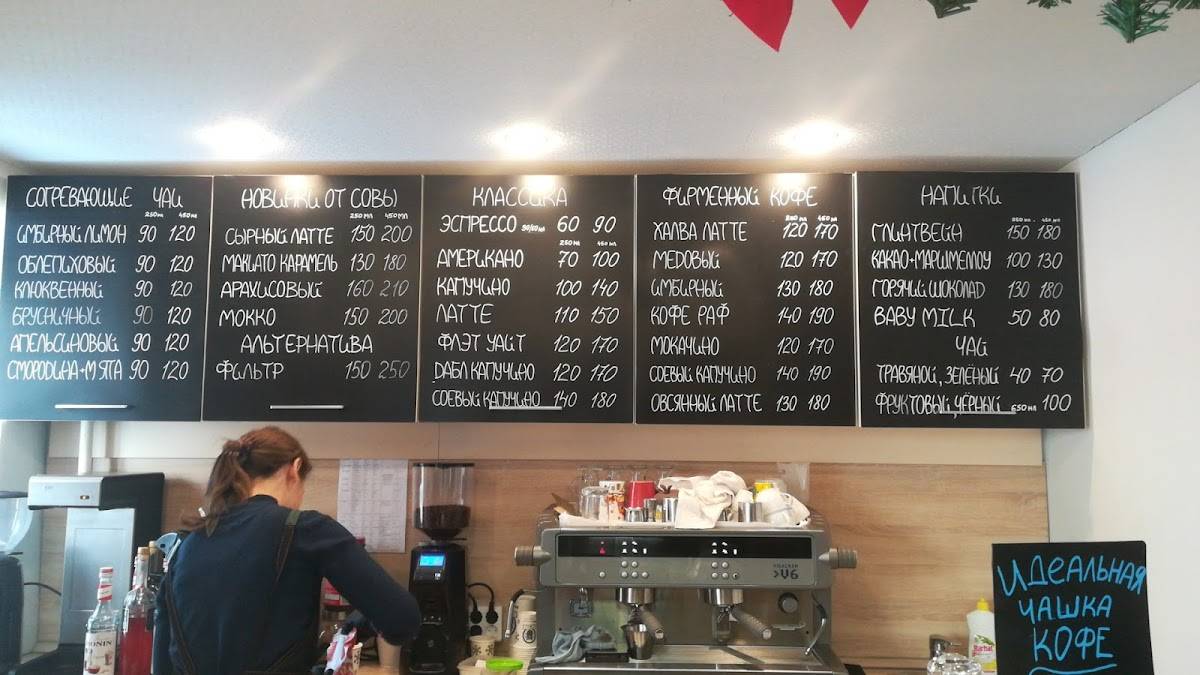 СОГРЕВАЮЩИЕ ЧАЙ
250 мл 450 мл
ИМБИРНЫЙ ЛИМОН 90 120
ОБЛЕПИХОВЫЙ 90 120
КЛЮКВЕННЫЙ 90 120
БРУСНИЧНЫЙ 90 120
АПЕЛЬСИНОВЫЙ 90 120
СМОРОДИНА+МЯТА 90 120
НОВИНКИ ОТ СОВЫ
250 МЛ 450 МЛ
СЫРНЫЙ ЛАТТЕ 150 200
МАКИАТО КАРАМЕЛЬ 130 180
АРАХИСОВЫЙ 160 210
МОККО 150 200
АЛЬТЕРНАТИВА
ФИЛЬТР 150 250
КЛАССИКА
ЭСПРЕССО 30/60 мл 60 90
250 мл 450 мл
АМЕРИКАНО 70 100
КАПУЧИНО 100 140
ЛАТТЕ 110 150
ФЛЭТ УАЙТ 120 170
ДАБЛ КАПУЧИНО 120 170
СОЕВЫЙ КАПУЧИНО 140 180
ФИРМЕННЫЙ КОФЕ
250 мл 450 мл
ХАЛВА ЛАТТЕ 120 170
МЕДОВЫЙ 120 170
ИМБИРНЫЙ 130 180
КОФЕ РАФ 140 190
МОКАЧИНО 120 170
СОЕВЫЙ КАПУЧИНО 140 190
ОВСЯННЫЙ ЛАТТЕ 130 180
НАПИТКИ
250 мл. 450 мл.
ГЛИНТВЕЙН 150 180
КАКАО+МАРШМЕЛЛОУ 100 130
ГОРЯЧИЙ ШОКОЛАД 130 180
BABY MILK 50 80
ЧАЙ
ТРАВЯНОЙ, ЗЕЛЁНЫЙ 40 70
ФРУКТОВЫЙ, ЧЁРНЫЙ 650 мл 100
>V6
MONIN
ИДЕАЛЬНАЯ
ЧАШКА
КОФЕ